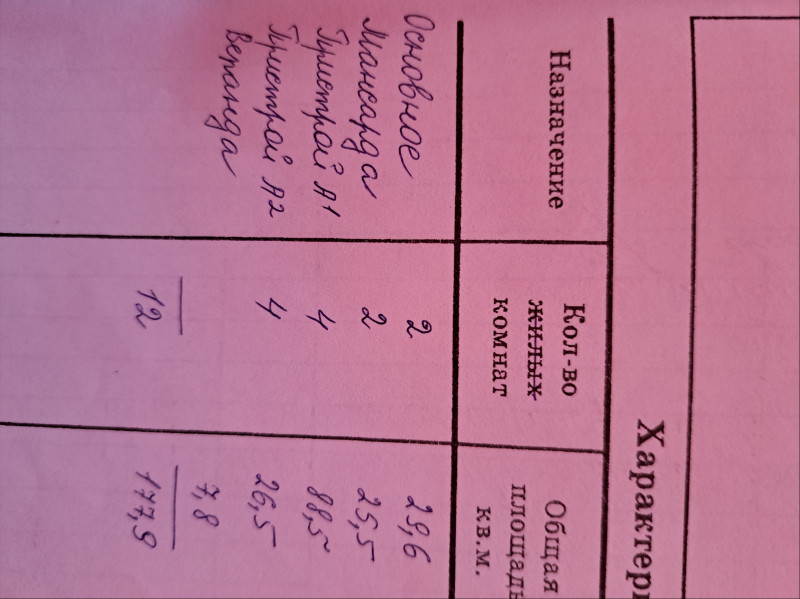 Характери
Назначение Кол-во жилых комнат Общая площадь кв.м.
Основное 2 29,6
Мансарда 2 25,5
Пристрой А1 4 88,5
Пристрой А2 4 26,5
Веранда 7,8
12 177,9